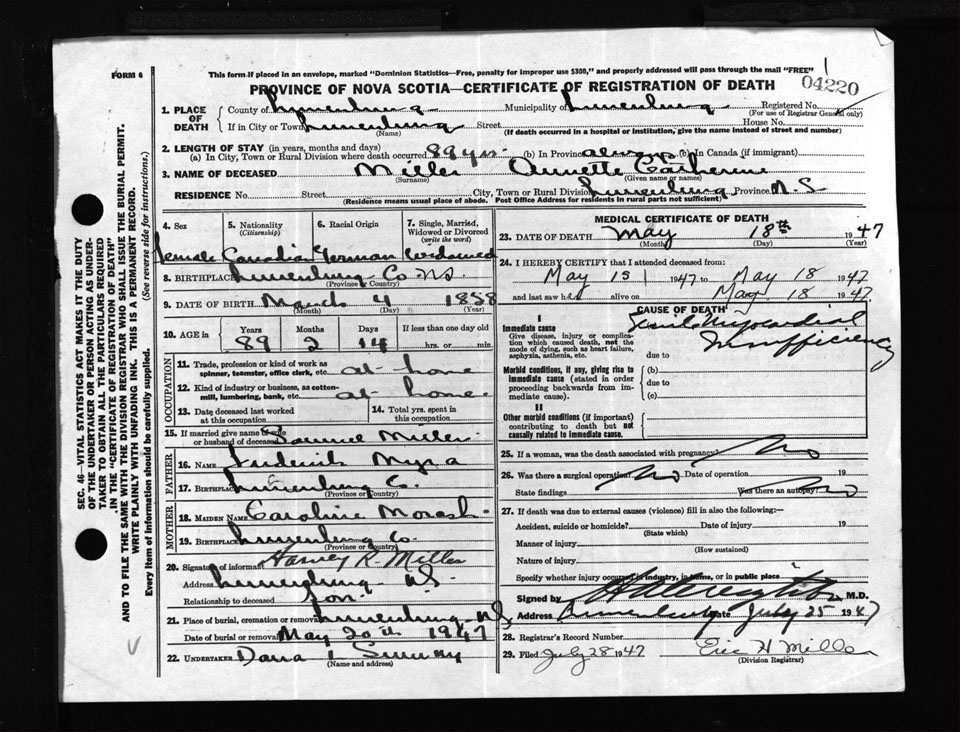 FORM 6
This form if placed in an envelope, marked "Dominion Statistics—Free, penalty for improper use $300," and properly addressed will pass through the mail "FREE"
04220
PROVINCE OF NOVA SCOTIA—CERTIFICATE OF REGISTRATION OF DEATH
SEC. 46—VITAL STATISTICS ACT MAKES IT THE DUTY
OF THE UNDERTAKER OR PERSON ACTING AS UNDER-
TAKER TO OBTAIN ALL THE PARTICULARS REQUIRED
IN THE "CERTIFICATE OF REGISTRATION OF DEATH"
AND TO FILE THE SAME WITH THE DIVISION REGISTRAR WHO SHALL ISSUE THE BURIAL PERMIT.
WRITE PLAINLY WITH UNFADING INK. THIS IS A PERMANENT RECORD.
Every item of Information should be carefully supplied. (See reverse side for instructions.)
1. PLACE OF DEATH
County of Lunenburg Municipality of Lunenburg Registered No.
(For use of Registrar General only)
If in City or Town Lunenburg Street House No.
(Name) (If death occurred in a hospital or institution, give the name instead of street and number)
2. LENGTH OF STAY (in years, months and days)
(a) In City, Town or Rural Division where death occurred 89 yrs. (b) In Province always (c) In Canada (if immigrant)
3. NAME OF DECEASED Miller Annette Catherine
(Surname) (Given name or names)
RESIDENCE No. Street City, Town or Rural Division Lunenburg Province N. S
(Residence means usual place of abode. Post Office Address for residents in rural parts not sufficient)
4. Sex 5. Nationality (Citizenship) 6. Racial Origin 7. Single, Married, Widowed or Divorced (write the word)
Female Canadian German Widowed
8. BIRTHPLACE Lunenburg Co. N.S.
(Province or Country)
9. DATE OF BIRTH March 4 1858
(Month) (Day) (Year)
10. AGE in Years Months Days If less than one day old
89 2 14 hrs. or min.
OCCUPATION
11. Trade, profession or kind of work as spinner, teamster, office clerk, etc. at home
12. Kind of industry or business, as cotton-mill, lumbering, bank, etc. at home
13. Date deceased last worked at this occupation 14. Total yrs. spent in this occupation
15. If married give name of wife or husband of deceased Samuel Miller
FATHER
16. NAME Frederick Myra
17. BIRTHPLACE Lunenburg C.
(Province or Country)
MOTHER
18. MAIDEN NAME Caroline Morash
19. BIRTHPLACE Lunenburg Co.
(Province or Country)
20. Signature of informant Harvey R. Miller
Address Lunenburg N.S.
Relationship to deceased Son
21. Place of burial, cremation or removal Lunenburg N.S
Date of burial or removal May 20th 1947
22. UNDERTAKER Dana
(Name and address)
MEDICAL CERTIFICATE OF DEATH
23. DATE OF DEATH May 18th 1947
(Month) (Day) (Year)
24. I HEREBY CERTIFY that I attended deceased from:
May 15 1947 to May 18 1947
and last saw her alive on May 18 1947
CAUSE OF DEATH
I
Immediate cause Senile Myocardial Insufficiency
Give disease, injury or complication which caused death, not the mode of dying, such as heart failure, asphyxia, asthenia, etc.
(a)
due to
Morbid conditions, if any, giving rise to immediate cause (stated in order proceeding backwards from immediate cause).
(b)
due to
(c)
II
Other morbid conditions (if important) contributing to death but not causally related to immediate cause.
25. If a woman, was the death associated with pregnancy? No
26. Was there a surgical operation? No Date of operation 19
State findings Was there an autopsy? No
27. If death was due to external causes (violence) fill in also the following:—
Accident, suicide or homicide? Date of injury 19
(State which)
Manner of injury
(How sustained)
Nature of injury
Specify whether injury occurred in industry, in home, or in public place
Signed by M.D.
Address Lunenburg Date July 25 1947
28. Registrar's Record Number
29. Filed July 28 1947 Eric H Miller
(Division Registrar)